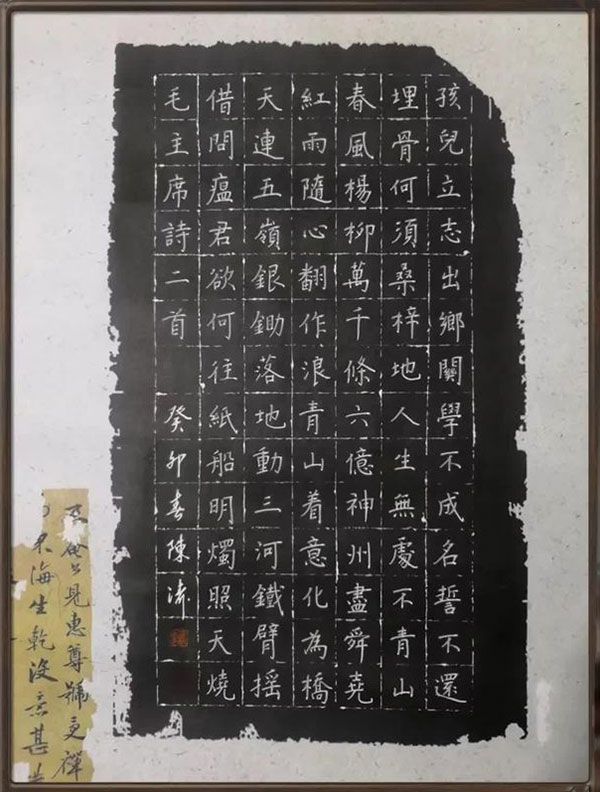 孩兒立志出鄉關學不成名誓不還
埋骨何須桑梓地人生無處不青山
春風楊柳萬千條六億神州盡舜堯
紅雨隨心翻作浪青山着意化為橋
天連五嶺銀鋤落地動三河鐵臂搖
借問瘟君欲何往紙船明燭照天燒
毛主席詩二首 癸卯春陳
見惠尊號
海生乾沒